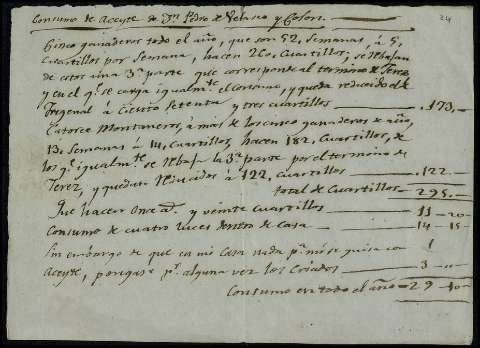 24
Consumo de Aceyte de Dn. Pedro de Velasco y Colon.
Cinco ganaderos todo el año, que son 52, semanas, á 5,
Cuartillos por Semana, hacen 260, Cuartillos, se Rebajan
de estos una 3ª parte que corresponde al termino de Xerez
y en el qe. se carga igualmte. el consumo, y queda reducido el de
Fregenal á Ciento Setenta y tres cuartillos 173,
Catorce Montaneros, á mas de los cinco ganaderos de año,
13, Semanas á 14, cuartillos, hacen 182, Cuartillos, de
los qe. igualmte. se Rebaja la 3ª parte por el termino de
Xerez, y quedan Reducidos á 122, cuartillos 122
total de Cuartillos 295
Que hacen Once ad. y veinte cuartillos 11 20
Consumo de cuatro luces dentro de casa 14 15
Sin embargo de que en mi Casa nada pa. mi se guisa con
Aceyte, pongase pr. alguna vez los Criados 3
Consumo en todo el año 29